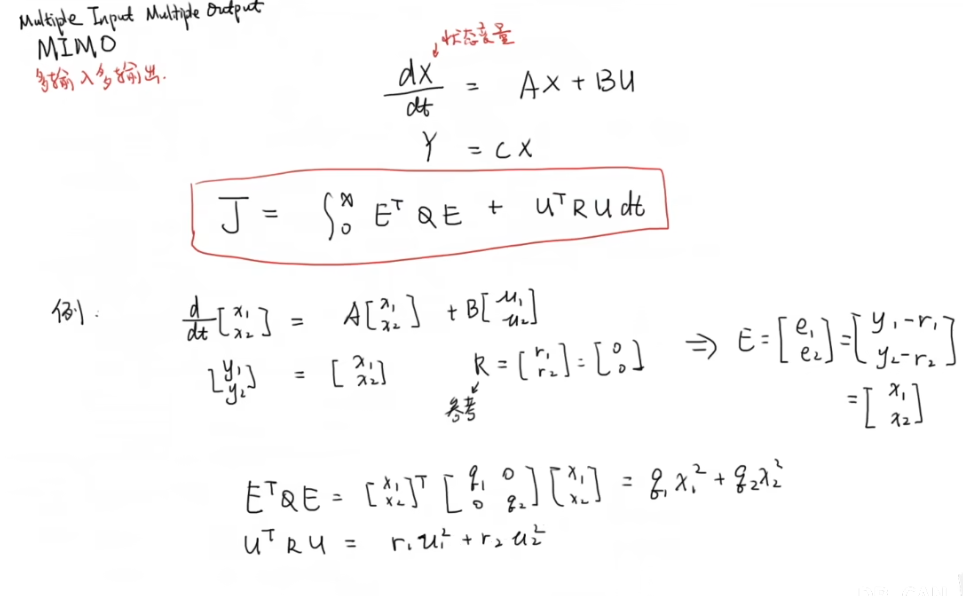 Multiple Input Multiple Output
MIMO
多输入多输出.
状态变量
dX/dt = AX + BU
Y = CX
J = ∫₀^∞ EᵀQE + UᵀRU dt
例:
d/dt [x₁ x₂] = A[x₁ x₂] + B[u₁ u₂]
[y₁ y₂] = [x₁ x₂] R = [r₁ r₂] = [0 0] ⇒ E = [e₁ e₂] = [y₁-r₁ y₂-r₂]
参考
= [x₁ x₂]
EᵀQE = [x₁ x₂]ᵀ [q₁ 0 0 q₂] [x₁ x₂] = q₁x₁² + q₂x₂²
UᵀRU = r₁u₁² + r₂u₂²